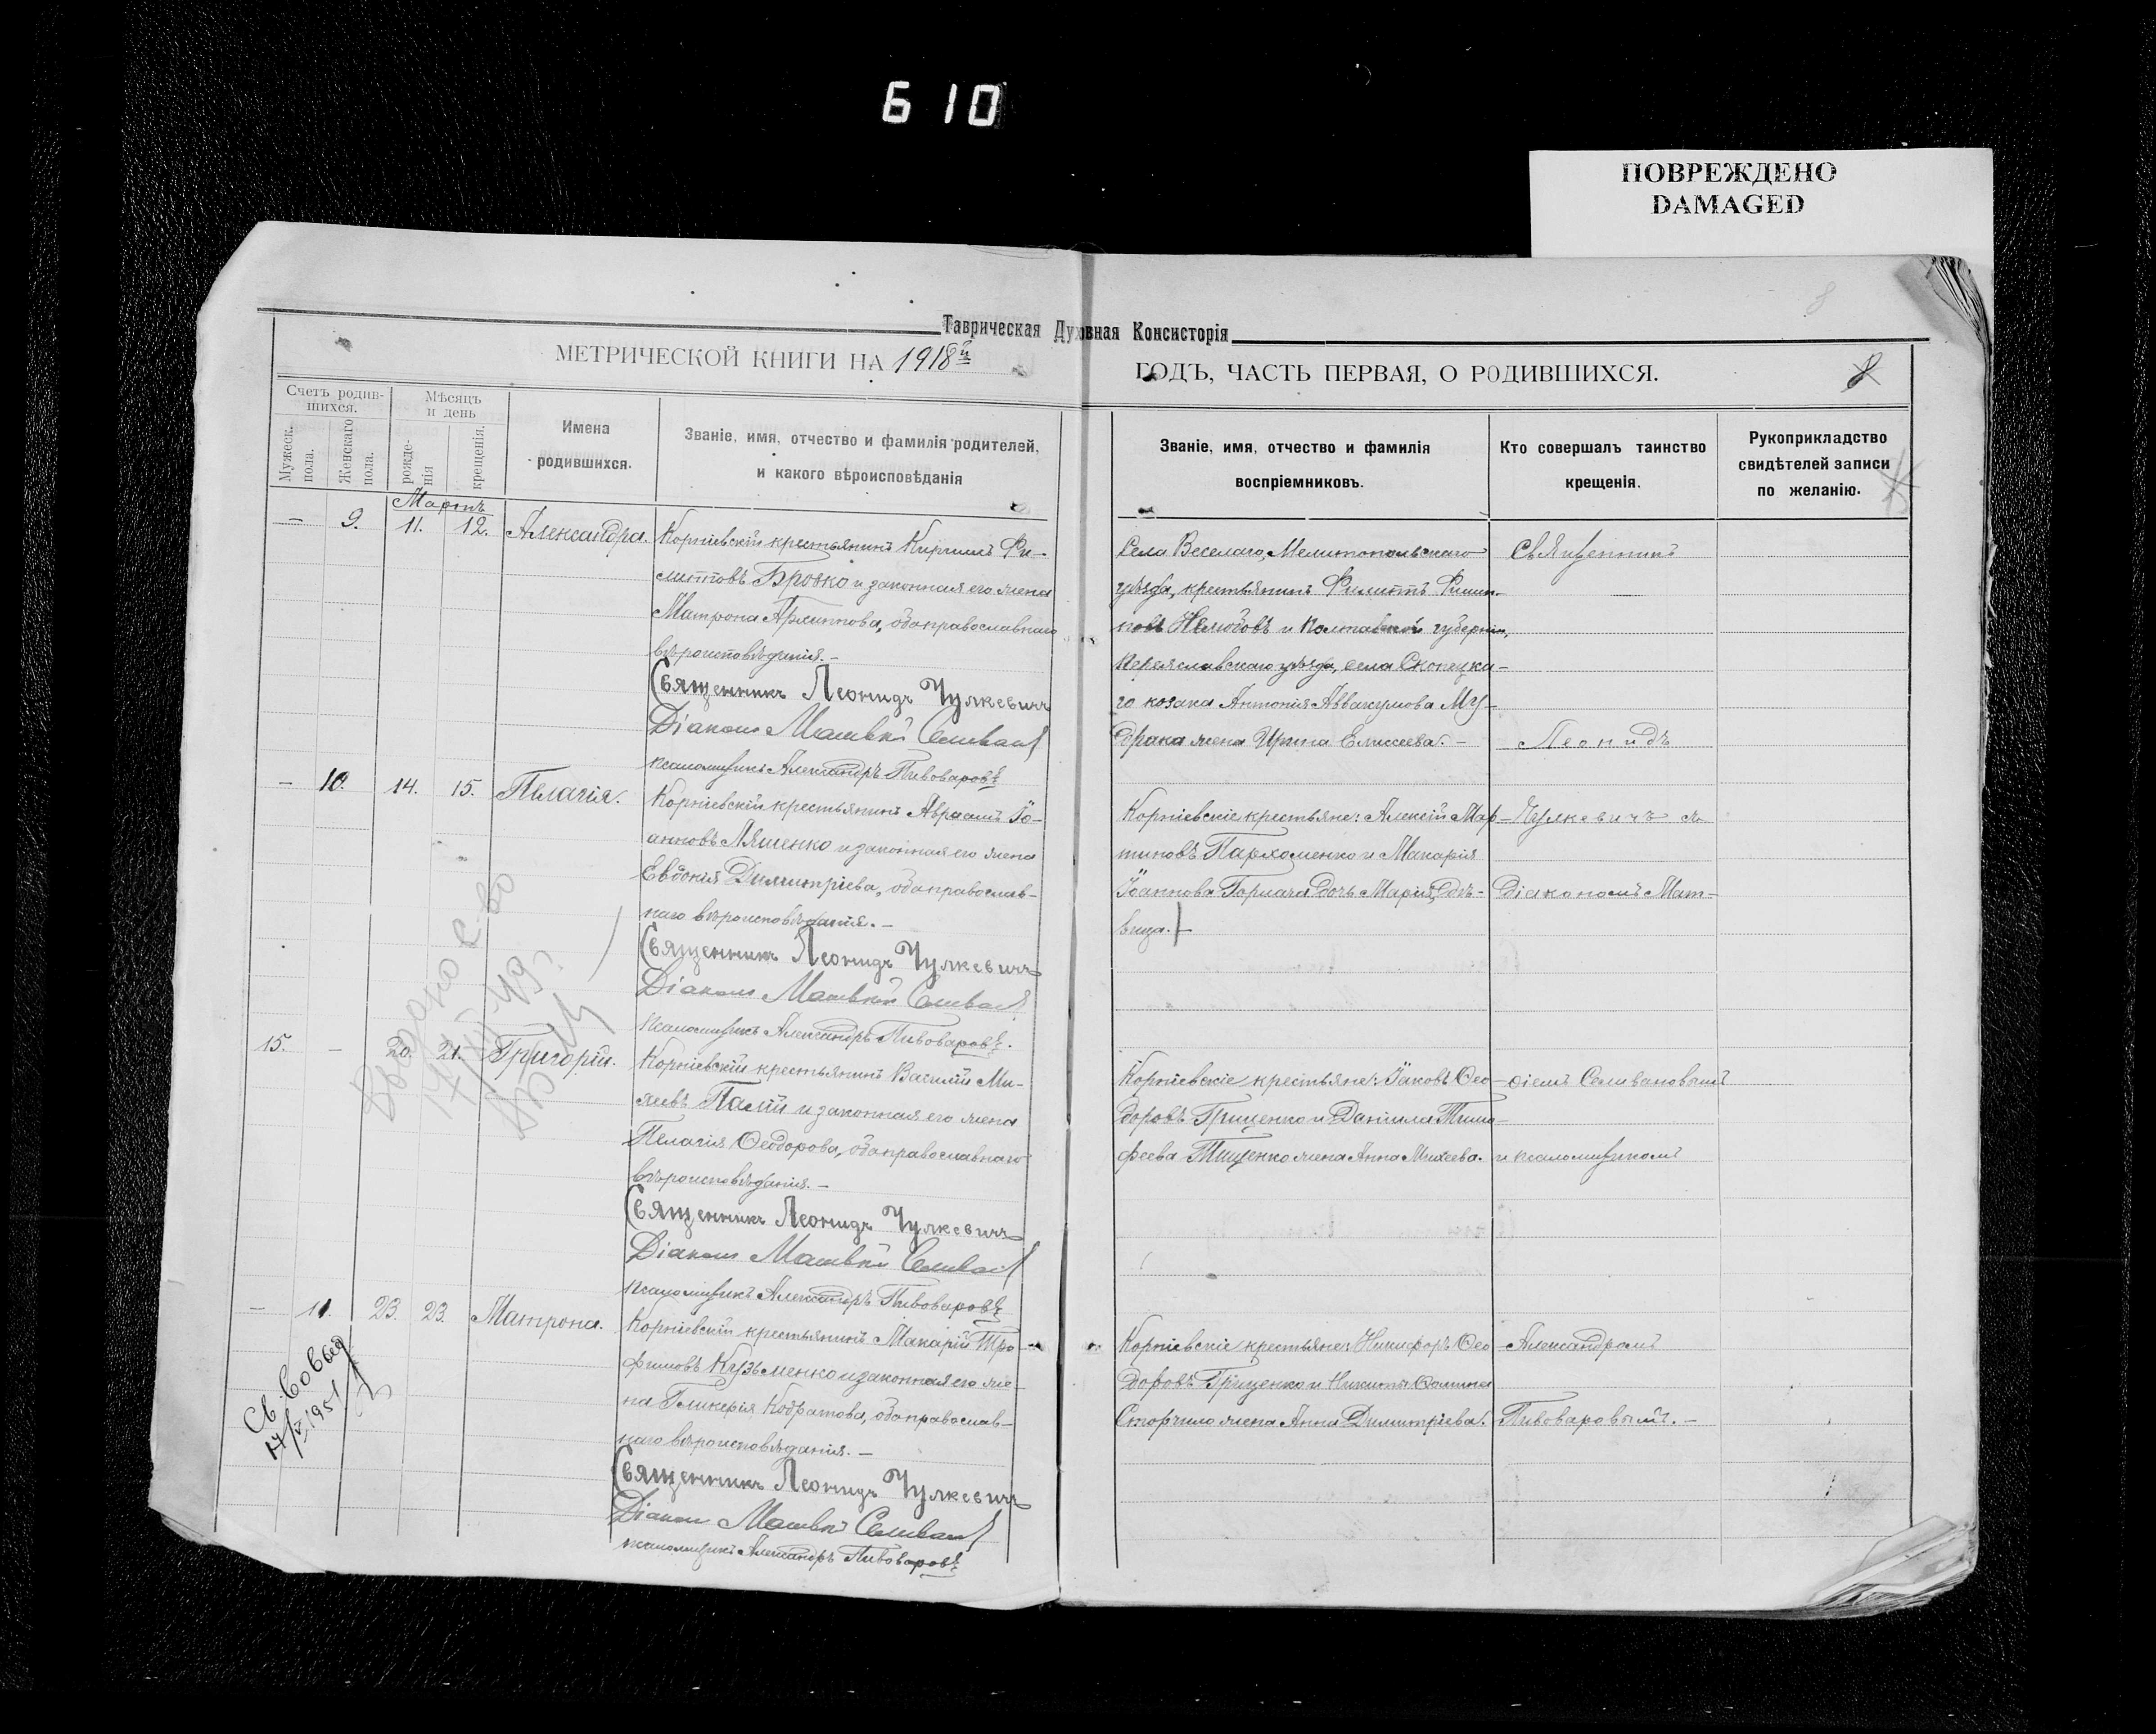 6 10
ПОВРЕЖДЕНО
DAMAGED
8
Таврическая Духовная Консисторія
МЕТРИЧЕСКОЙ КНИГИ НА 1918й
ГОДЪ, ЧАСТЬ ПЕРВАЯ, О РОДИВШИХСЯ.
8
Счетъ родив-
шихся.
Мужеск. пола.
Женскаго пола.
Мѣсяцъ
и день
рожде-
нія
крещенія.
Имена
родившихся.
Званіе, имя, отчество и фамилія родителей,
и какого вѣроисповѣданія
Званіе, имя, отчество и фамилія
воспріемниковъ.
Кто совершалъ таинство
крещенія.
Рукоприкладство
свидѣтелей записи
по желанію.
Мартъ
— 9. 11. 12. Александра.
Корніевскій крестьянинъ Кириллъ Фи-
липповъ Бровко и законная его жена
Матрона Архиппова, оба православнаго
вѣроисповѣданія.—
Священникъ Леонидъ Чулкевичъ
Діаконъ Матвѣй Селиванов
псаломщикъ Александръ Пивоваровъ
Села Веселаго, Мелитопольскаго
уѣзда, крестьянинъ Филиппъ Филип-
повъ Нелюбовъ и Полтавской губерніи,
Переяславскаго уѣзда, села Скопецка-
го козака Антонія Аввакумова Му-
драка жена Ирина Елисеева.—
Священникъ
Леонидъ
— 10. 14. 15. Пелагія.
Корніевскій крестьянинъ Авраамъ Іо-
анновъ Ляшенко и законная его жена
Евдокія Димитріева, оба православ-
наго вѣроисповѣданія.—
Священникъ Леонидъ Чулкевичъ
Діаконъ Матвѣй Селиванов
псаломщикъ Александръ Пивоваровъ.
Корніевскіе крестьяне: Алексій Мар-
тиновъ Пархоменко и Макарія
Іоаннова Горпача дочь Марія, дѣ-
вица.—
Чулкевичъ съ
діакономъ Мат-
15. — 20. 21. Григорій.
Корніевскій крестьянинъ Василій Ми-
Палій и законная его жена
Пелагія Ѳеодорова, оба православнаго
вѣроисповѣданія.—
Священникъ Леонидъ Чулкевичъ
Діаконъ Матвѣй Селиванов
псаломщикъ Александръ Пивоваровъ
Корніевскіе крестьяне: Іаковъ Ѳео-
доровъ Грищенко и Даніила Тимо-
феева Тищенко жена Анна Михеева.
ѳіемъ Селивановымъ
и псаломщикомъ
— 11. 23. 23. Матрона.
Корніевскій крестьянинъ Макарій Тро-
фимовъ Кузьменко и законная его же-
на Гликерія Кодратова, оба православ-
наго вѣроисповѣданія.—
Священникъ Леонидъ Чулкевичъ
Діаконъ Матвѣй Селиванов
псаломщикъ Александръ Пивоваровъ
Корніевскіе крестьяне: Никифоръ Ѳео-
доровъ Грищенко и Никиты Ѳомина
Сторчило жена Анна Димитріева.
Александромъ
Пивоваровымъ.—
Выдано с-во
17/XII-49 г.
17/V 1951